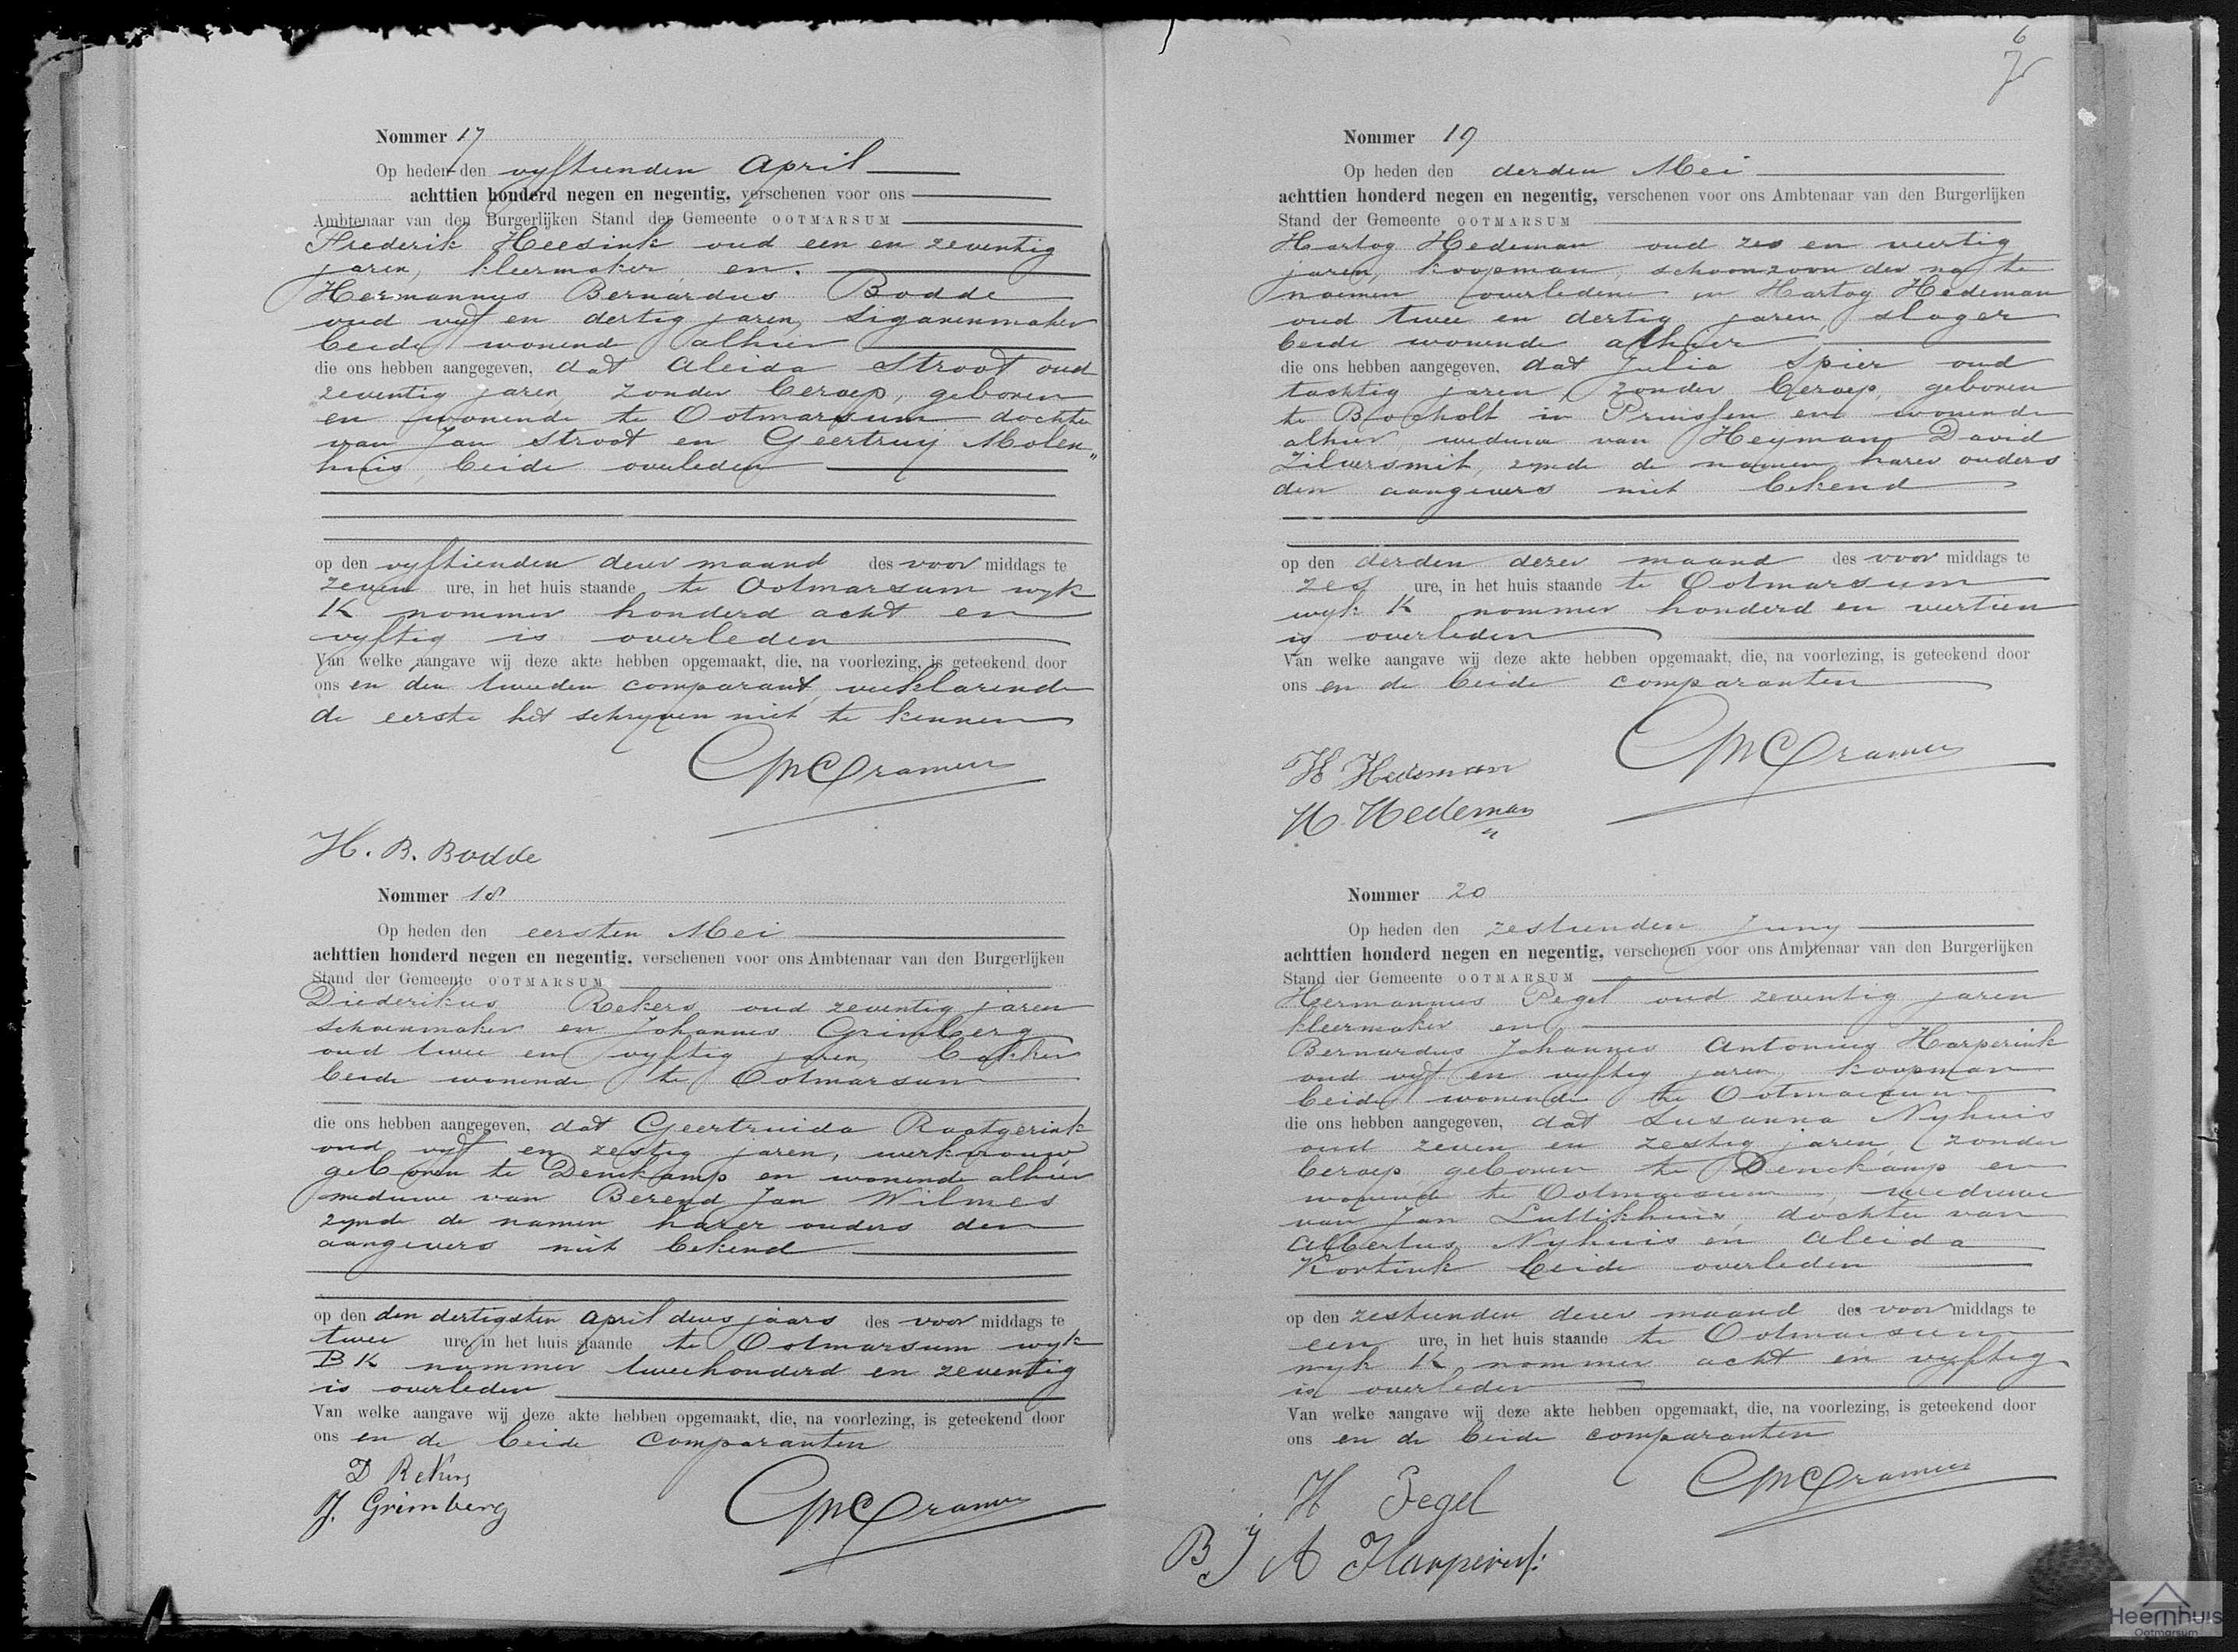 Nommer 17
Op heden den vyftienden April
achttien honderd negen en negentig, verschenen voor ons
Ambtenaar van den Burgerlijken Stand der Gemeente OOTMARSUM
Frederik Heesink oud een en zeventig
jaren, kleermaker en
Hermannus Bernardus Bodde
oud vyf en dertig jaren, sigarenmaker
beide wonend alhier
die ons hebben aangegeven, dat Aleida Stroot oud
zeventig jaren, zonder beroep, geboren
en wonende te Ootmarsum dochter
van Jan Stroot en Geertruy Molen„
huis, beide overleden
op den vyftienden dezer maand des voor middags te
zeven ure, in het huis staande te Ootmarsum wyk
K nommer honderd acht en
vyftig is overleden
Van welke aangave wij deze akte hebben opgemaakt, die, na voorlezing, is geteekend door
ons en den tweeden comparant, verklarende
de eerste het schryven niet te kennen
Cramer
H. B. Bodde
Nommer 18
Op heden den eersten Mei
achttien honderd negen en negentig, verschenen voor ons Ambtenaar van den Burgerlijken
Stand der Gemeente OOTMARSUM
Diederikus Rekers oud zeventig jaren
schoenmaker en Johannes Grimberg
oud twee en vyftig jaren, bakker
beide wonende te Ootmarsum
die ons hebben aangegeven, dat Geertruida Raatgerink
oud vyf en zestig jaren, werkvrouw
geboren te Denekamp en wonende alhier
weduwe van Berend Jan Wilmes
zynde de namen harer ouders den
aangevers niet bekend
op den den dertigsten April dezes jaars des voor middags te
twee ure, in het huis staande te Ootmarsum wyk
B K nommer tweehonderd en zeventig
is overleden
Van welke aangave wij deze akte hebben opgemaakt, die, na voorlezing, is geteekend door
ons en de beide comparanten
D Rekers
J. Grimberg
Cramer
6
7
Nommer 19
Op heden den derden Mei
achttien honderd negen en negentig, verschenen voor ons Ambtenaar van den Burgerlijken
Stand der Gemeente OOTMARSUM
Hartog Hedeman oud zes en veertig
jaren, koopman, schoonzoon der na te
noemen overledene en Hartog Hedeman
oud twee en dertig jaren, slager
beide wonende alhier
die ons hebben aangegeven, dat Julia Spier oud
tachtig jaren, zonder beroep, geboren
te Bocholt in Pruissen en wonende
alhier weduwe van Heyman David
Zilversmit, zynde de namen harer ouders
den aangevers niet bekend
op den derden dezer maand des voor middags te
zes ure, in het huis staande te Ootmarsum
wyk K nommer honderd en veertien
is overleden
Van welke aangave wij deze akte hebben opgemaakt, die, na voorlezing, is geteekend door
ons en de beide comparanten
Cramer
H Hedeman
H. Hedeman
Nommer 20
Op heden den zestienden Juny
achttien honderd negen en negentig, verschenen voor ons Ambtenaar van den Burgerlijken
Stand der Gemeente OOTMARSUM
Hermannus Pegel oud zeventig jaren
kleermaker en
Bernardus Johannes Antonius Harperink
oud vyf en vyftig jaren, koopman
beide wonende te Ootmarsum
die ons hebben aangegeven, dat Susanna Nyhuis
oud zeven en zestig jaren, zonder
beroep geboren te Denekamp en
wonende te Ootmarsum, weduwe
van Jan Luttikhuis, dochter van
Albertus Nyhuis en Aleida
Kortink beide overleden
op den zestienden dezer maand des voor middags te
een ure, in het huis staande te Ootmarsum
wyk K nommer acht en vyftig
is overleden
Van welke aangave wij deze akte hebben opgemaakt, die, na voorlezing, is geteekend door
ons en de beide comparanten
H Pegel
Cramer
B J A Harperink
Heemhuis
Ootmarsum